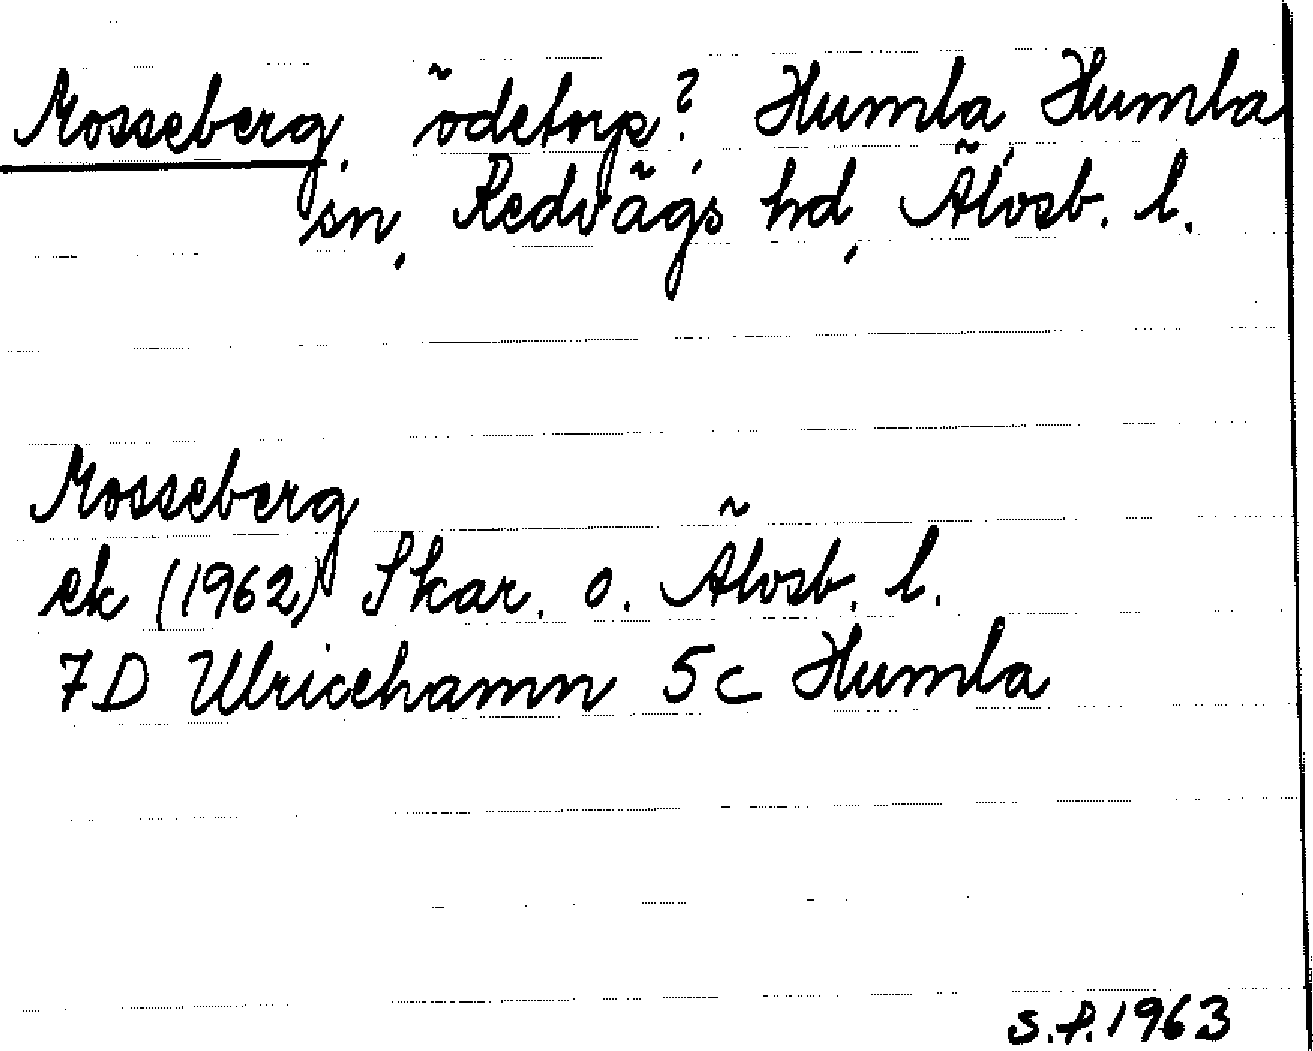 Mosseberg, ödetorp? Humla, Humla
sn, Redvägs hd, Älvsb. l.
Mosseberg
ek (1962) Skar. o. Älvsb. l.
7D Ulricehamn 5c Humla
S.F. 1963